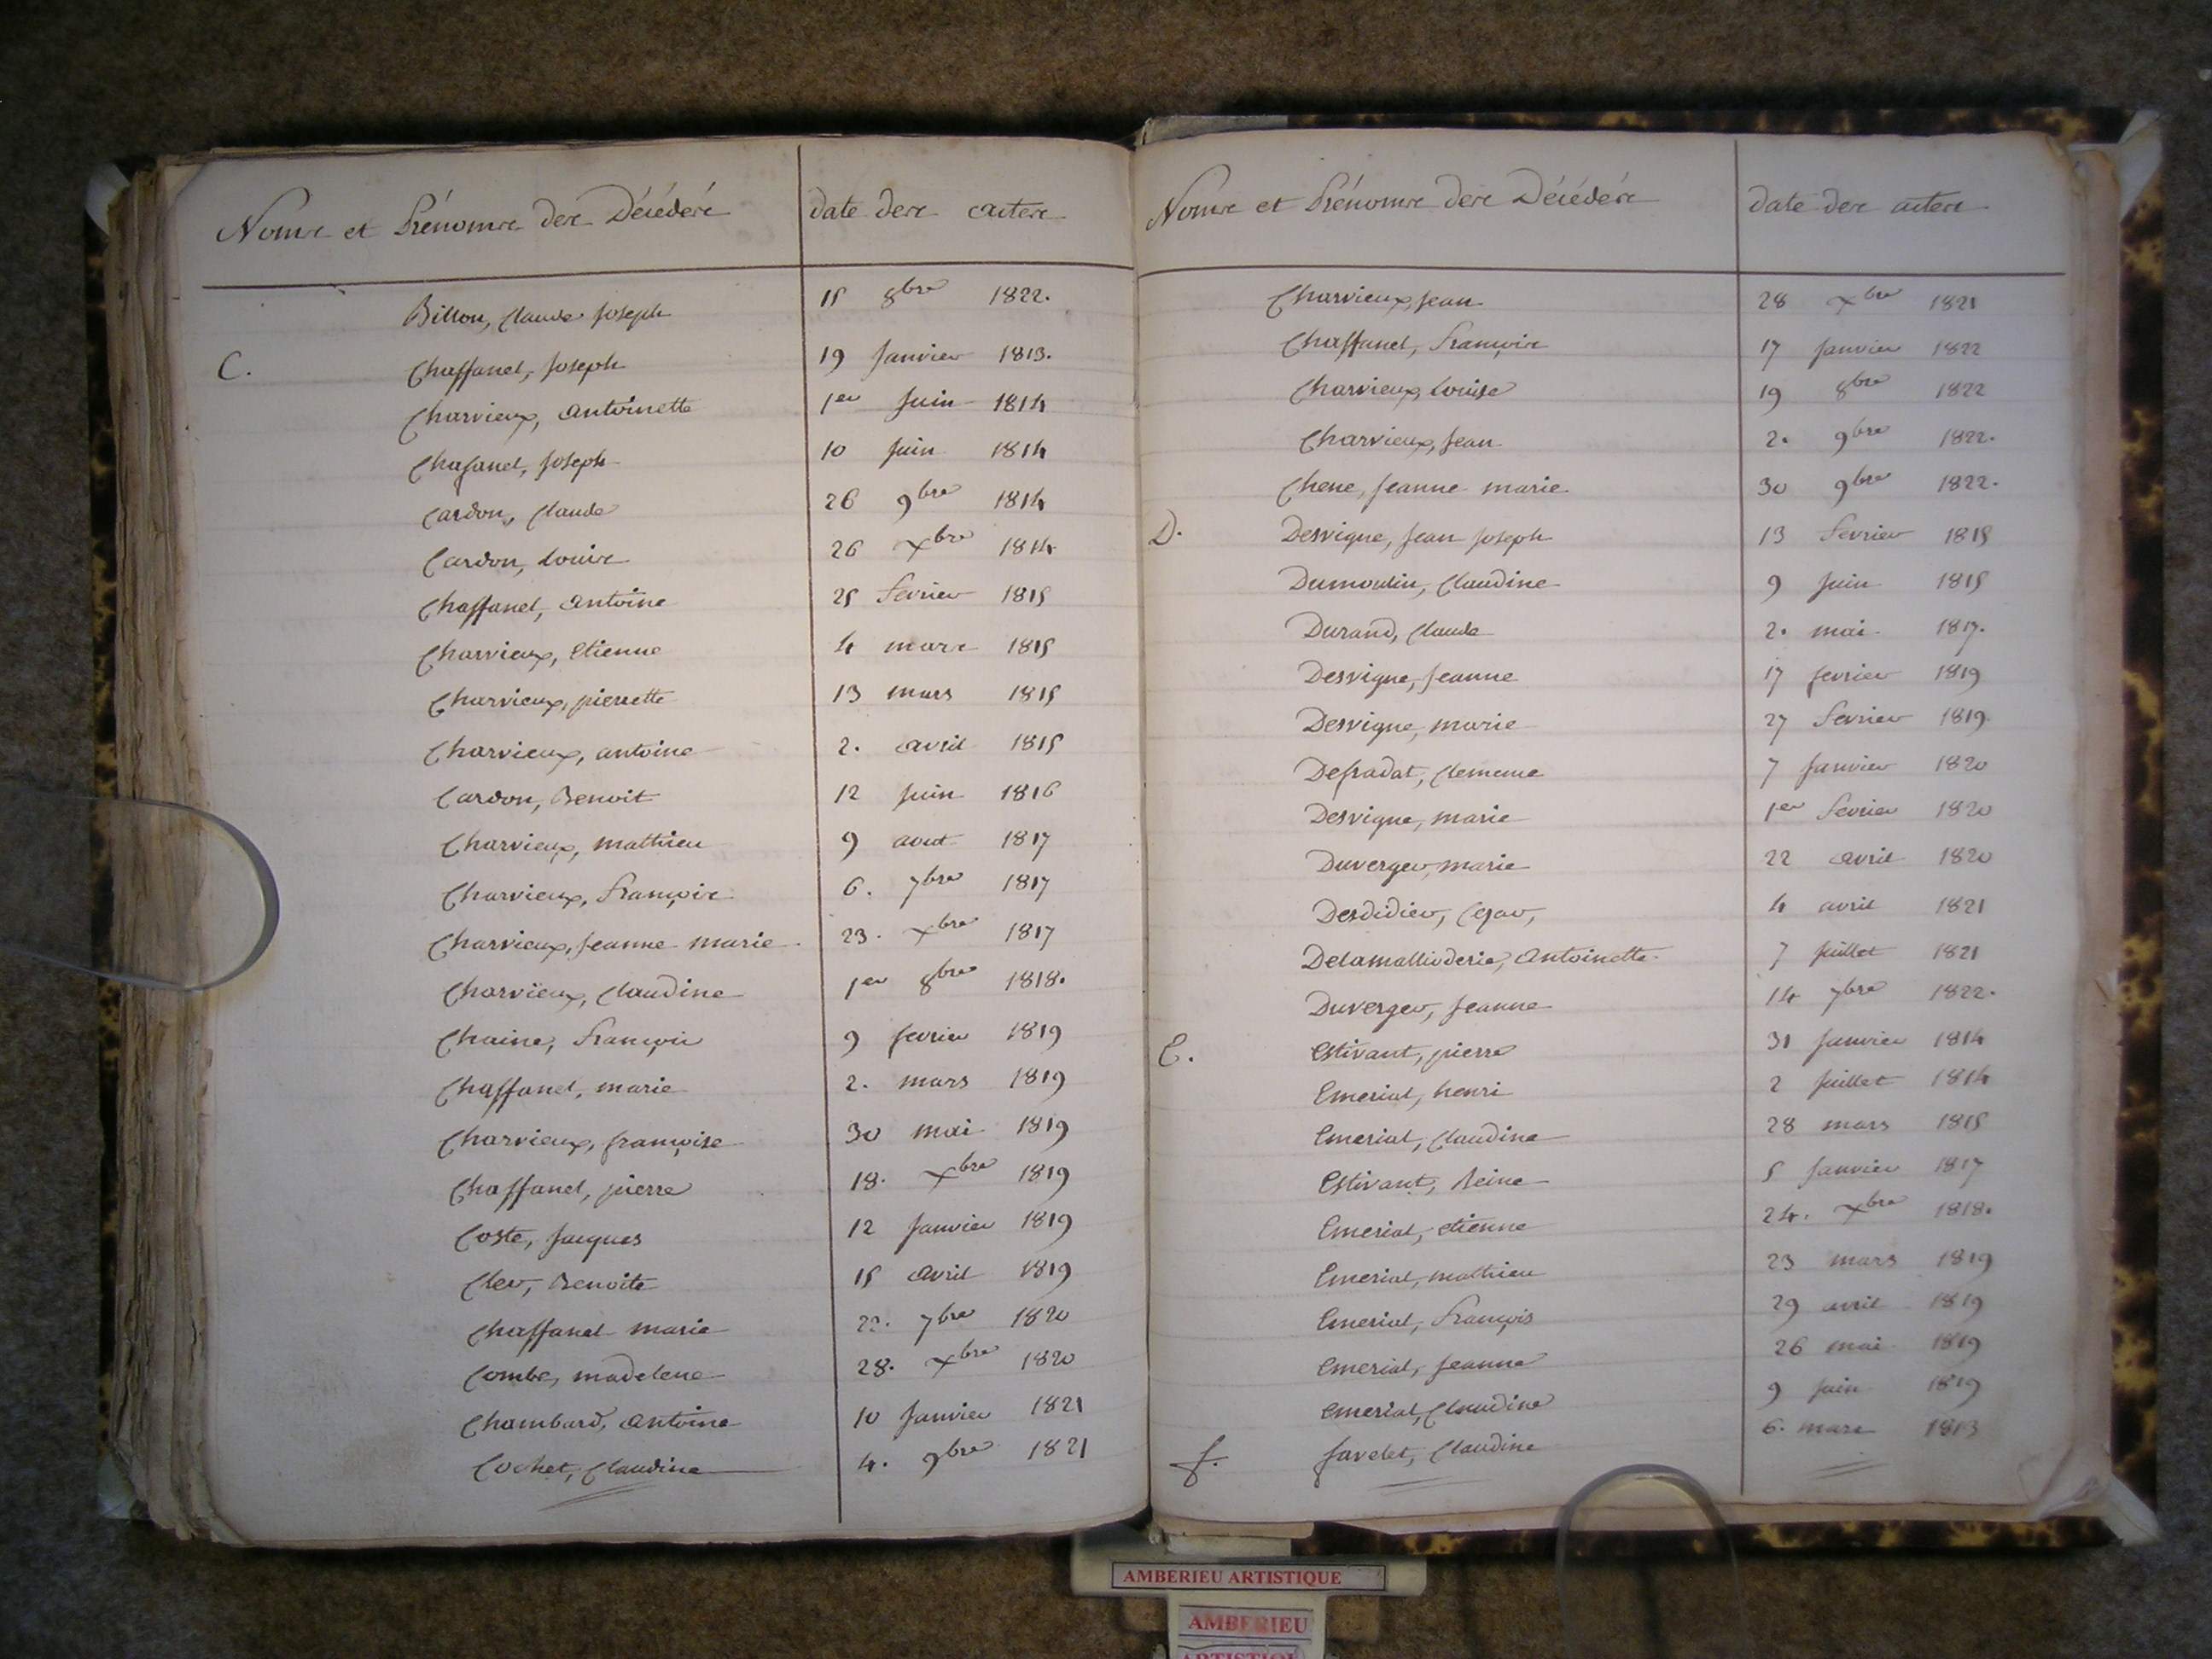 Noms et Prénoms des Décédés date des actes
Billon, Claude Joseph 15 8bre 1822.
C. Chaffanel, Joseph 19 Janvier 1813.
Charvieux, Antoinette 1er Juin 1814
Chafanel, Joseph 10 Juin 1814
Cardon, Claude 26 9bre 1814
Cardon, Louise 26 Xbre 1814
Chaffanel, Antoine 25 Fevrier 1815
Charvieux, Etienne 4 mars 1815
Charvieux, pierrette 13 mars 1815
Charvieux, antoine 2. avril 1815
Cardon, Benoit 12 Juin 1816
Charvieux, mathieu 9 aout 1817
Charvieux, François 6. 7bre 1817
Charvieux, Jeanne marie 23. Xbre 1817
Charvieux, Claudine 1er 8bre 1818.
Chaine, François 9 fevrier 1819
Chaffanel, marie 2. mars 1819
Charvieux, françoise 30 mai 1819
Chaffanel, pierre 18. Xbre 1819
Coste, Jacques 12 Janvier 1819
Cler, Benoite 15 avril 1819
Chaffanel marie 22. 7bre 1820
Combe, madelene 28. Xbre 1820
Chambard, Antoine 10 Janvier 1821
Cochet, Claudine 4. 9bre 1821
Noms et Prénoms des Décédés date des actes
Charvieux, Jean 28 Xbre 1821
Chaffanel, François 17 Janvier 1822
Charvieux, Louise 19 8bre 1822
Charvieux, Jean 2. 9bre 1822.
Chene, Jeanne marie 30 9bre 1822.
D. Desvigne, Jean Joseph 13 Fevrier 1815
Dumoulin, Claudine 9 Juin 1815
Durand, Claude 2. mai 1817.
Desvigne, Jeanne 17 fevrier 1819
Desvigne, marie 27 Fevrier 1819.
Defradat, Clemence 7 Janvier 1820
Desvigne, marie 1er Fevrier 1820
Duverger, marie 22 avril 1820
Desdidier, Cesar, 4 avril 1821
Delamallioderie, Antoinette. 7 Juillet 1821
Duverger, Jeanne 14 7bre 1822.
E. Estivant, pierre 31 Janvier 1814
Emeriat, henri 2 Juillet 1814
Emeriat, Claudine 28 mars 1815
Estivant, Reine 5 Janvier 1817
Emeriat, etienne 24. Xbre 1818.
Emeriat, mathieu 23 mars 1819
Emeriat, François 29 avril 1819
Emeriat, Jeanne 26 mai 1819
emeriat, Claudine 9 Juin 1819
f. favelet, Claudine 6. mars 1813
AMBERIEU ARTISTIQUE
AMBERIEU
ARTISTIQUE